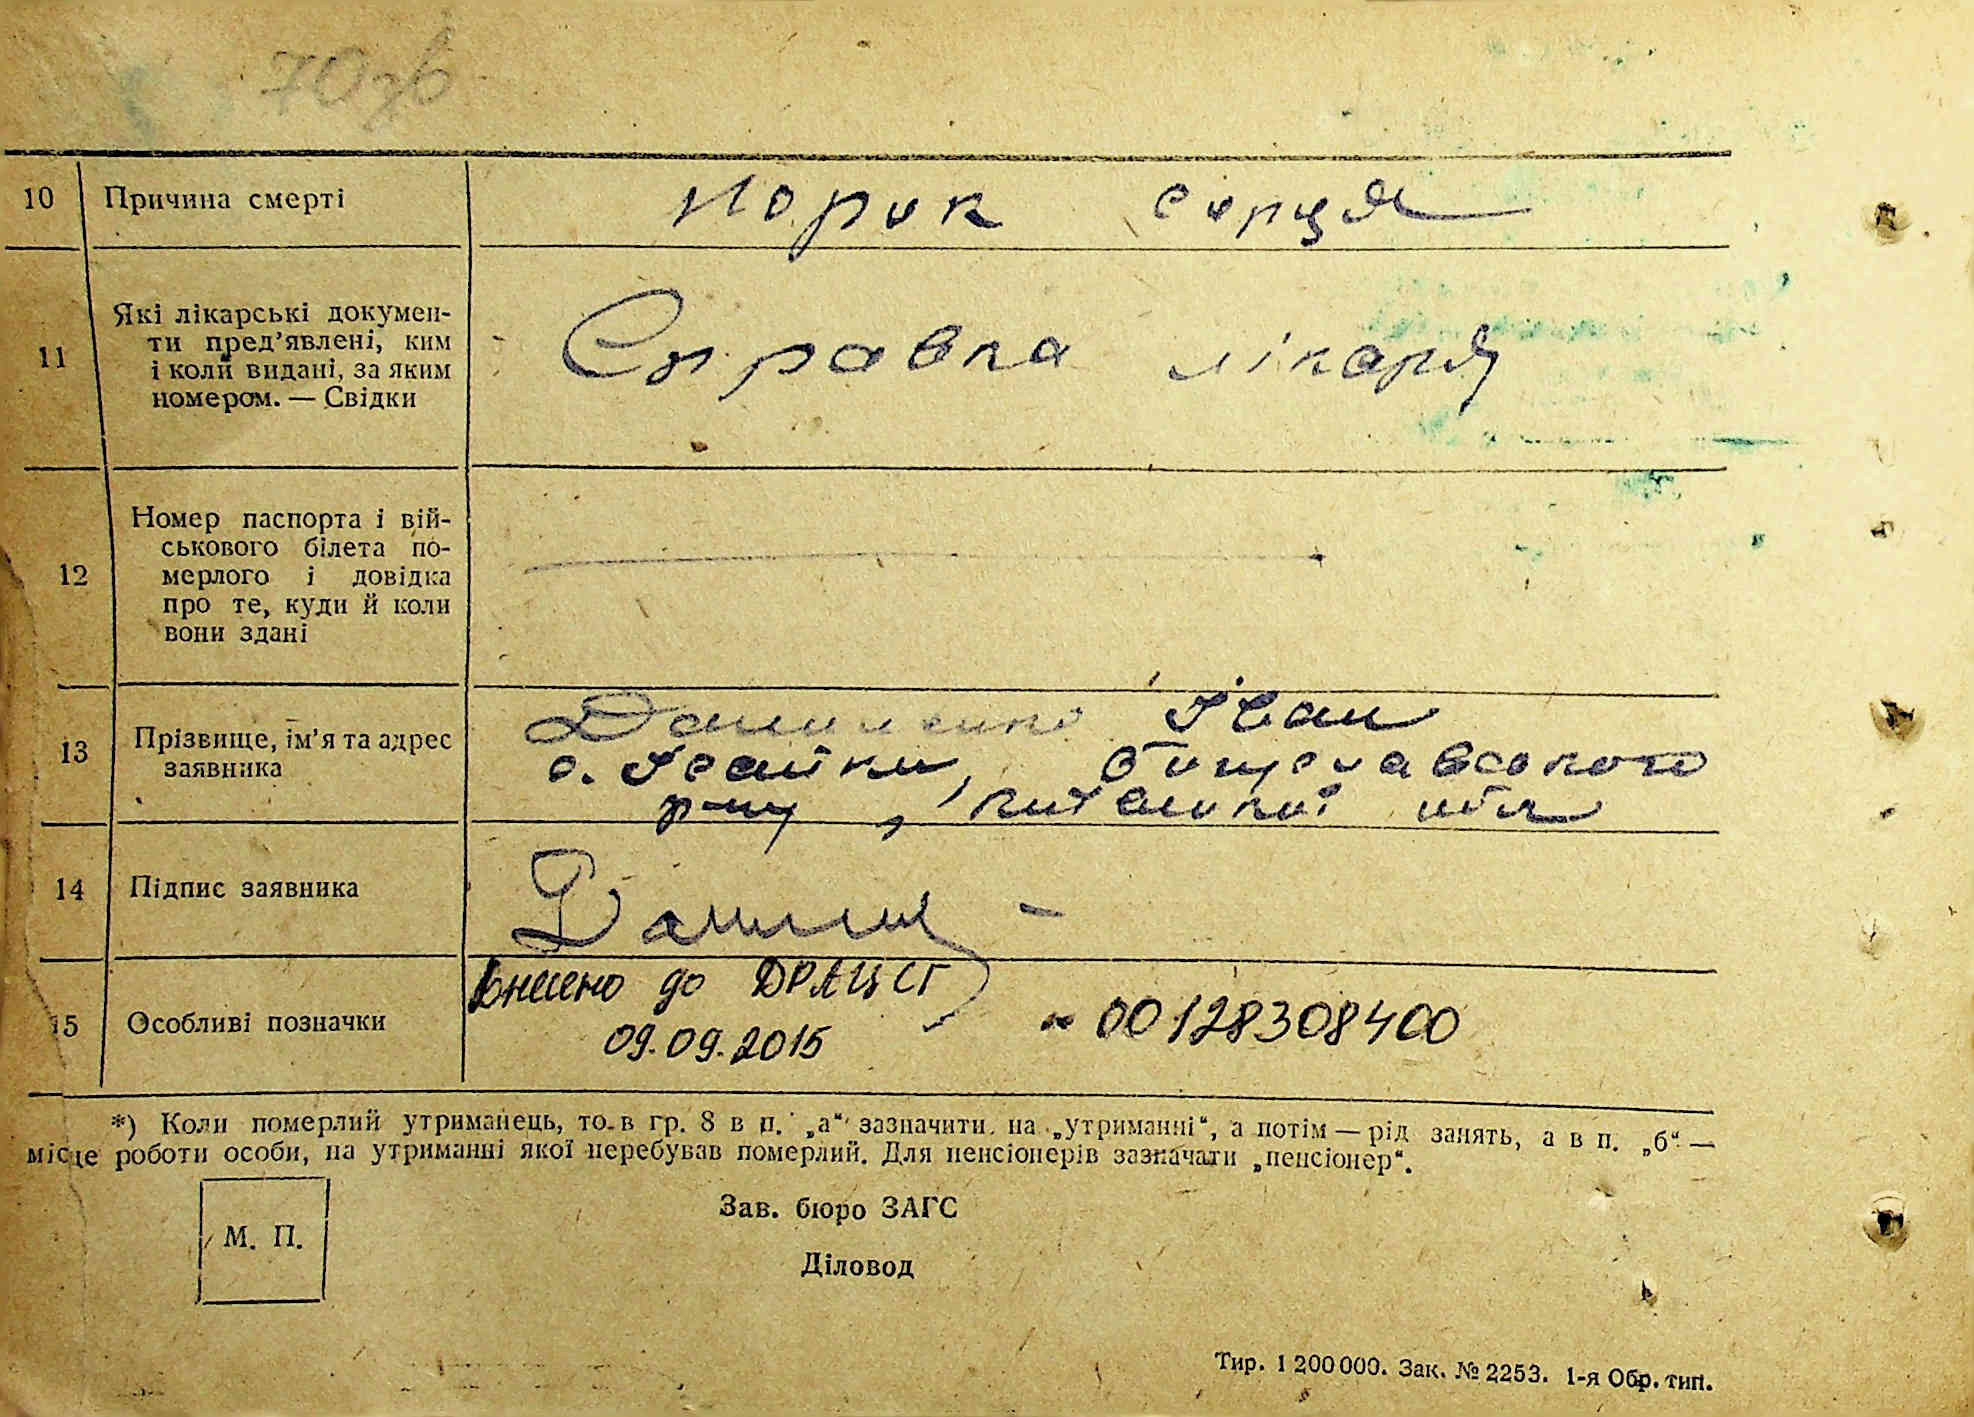 70зв
10 Причина смерті Порик серця
11 Які лікарські докумен-
ти пред’явлені, ким
і коли видані, за яким
номером. — Свідки
Справка лікаря
12 Номер паспорта і вій-
ськового білета по-
мерлого і довідка
про те, куди й коли
вони здані
13 Прізвище, ім’я та адрес
заявника
Даниленко Іван
с. Іванки, Бищевавського
р-ну, Київської обл
14 Підпис заявника
15 Особливі позначки
Внесено до ДРАЦСГ
09.09.2015 00128308400
*) Коли померлий утриманець, то в гр. 8 в п. „а“ зазначити на „утриманні“, а потім — рід занять, а в п. „б“ —
місце роботи особи, на утриманні якої перебував померлий. Для пенсіонерів зазначати „пенсіонер“.
М. П.
Зав. бюро ЗАГС
Діловод
Тир. 1 200 000. Зак. № 2253. 1-я Обр. тип.